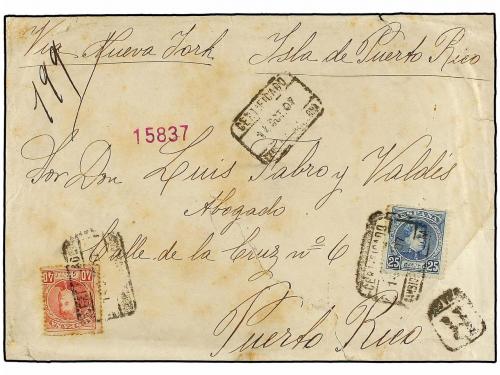 Via Nueva York Isla de Puerto Rico
199
CERTIFICADO
OCT 07
15837
Sor Don Luis Pabro y Valdés
Abogado
Calle de la Cruz nº 6
Puerto Rico
CERTIFICADO
ESPAÑA
25 25
40 40